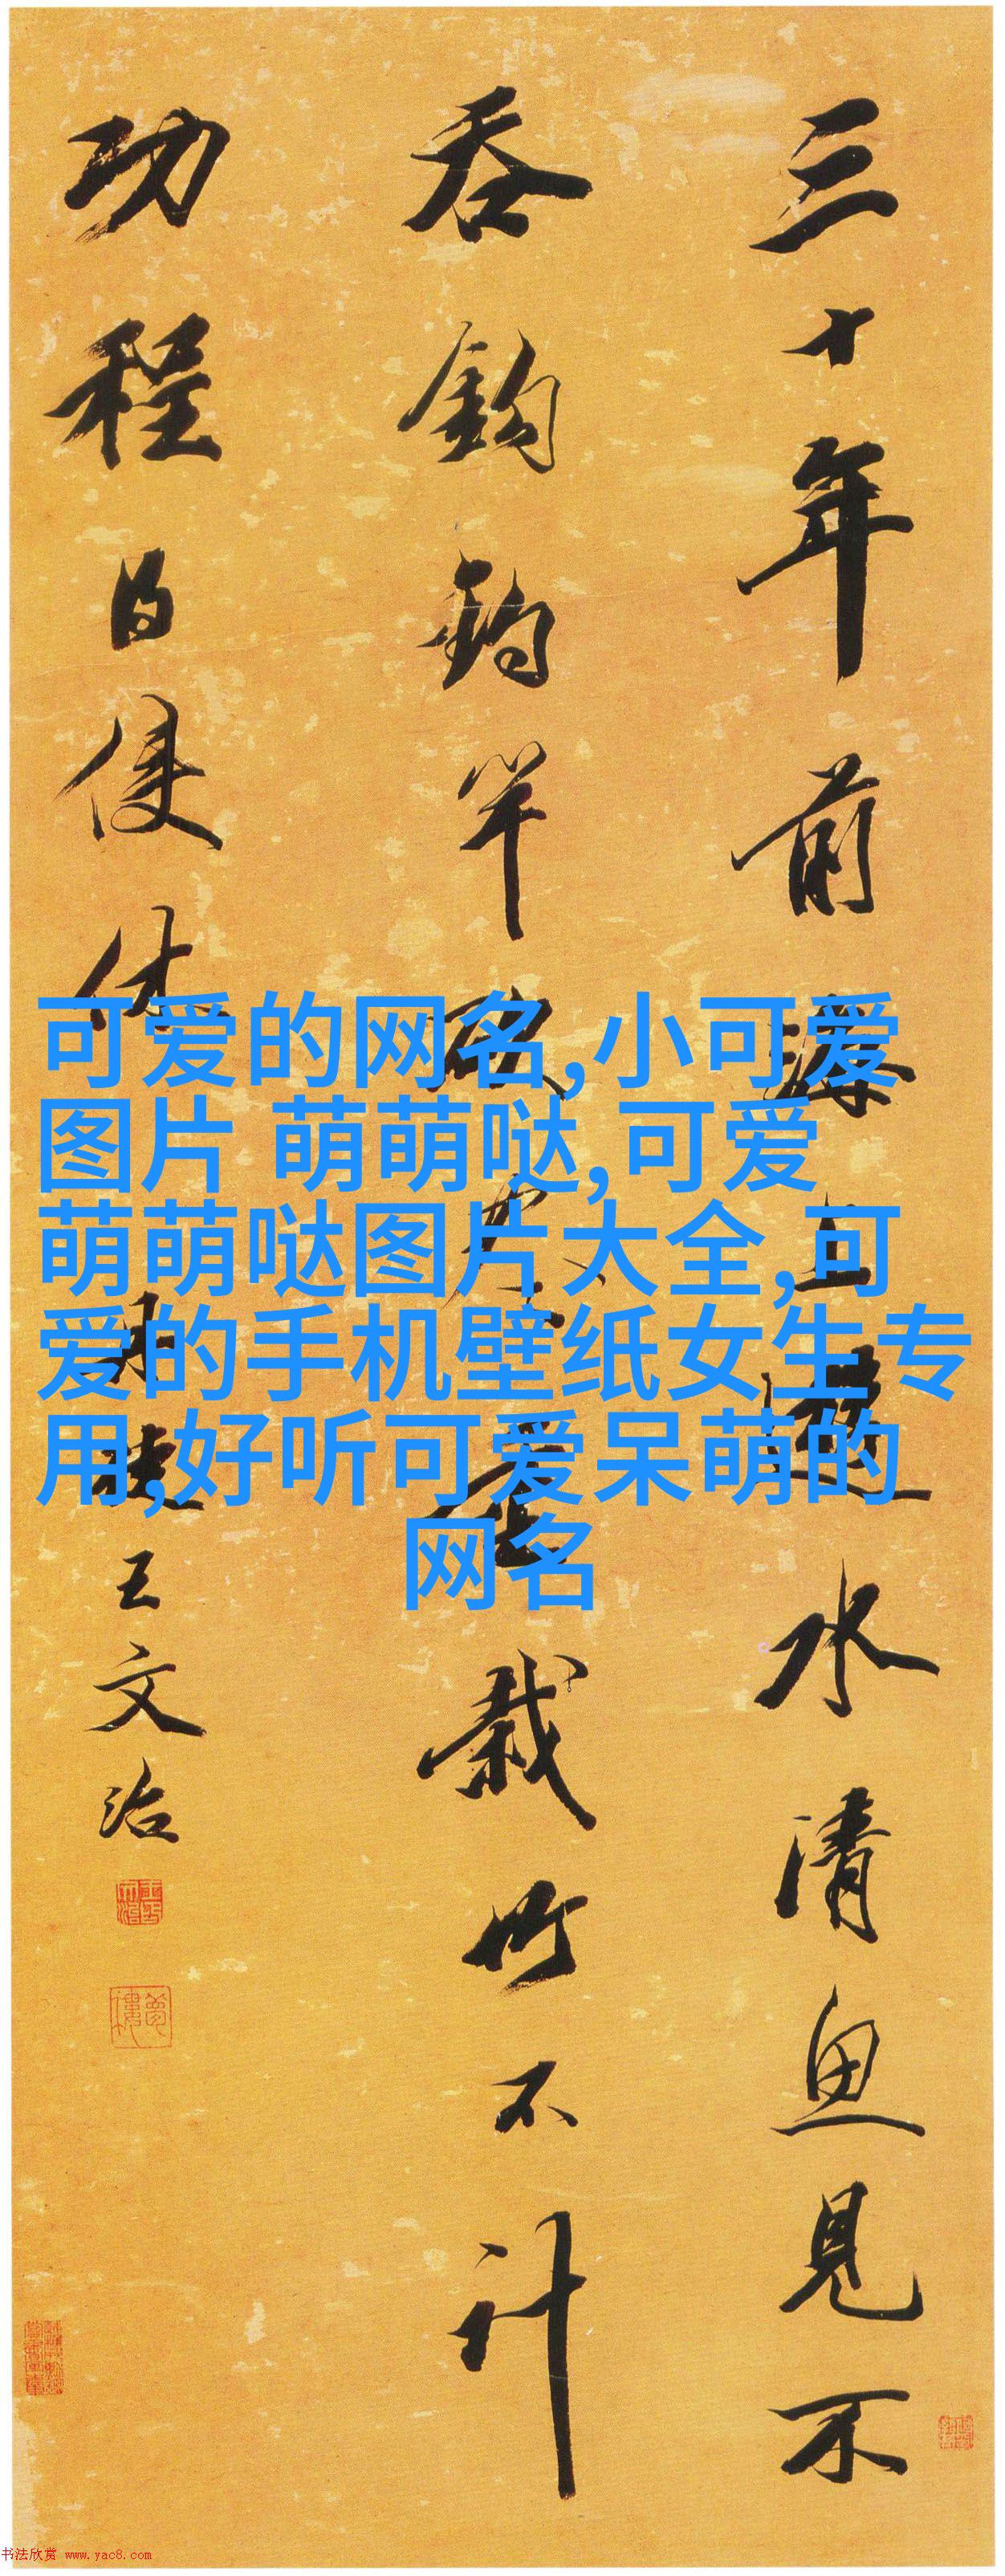 三十年前海上遊水清魚見不
吞鉤釣竿斫盡重栽竹不計
功程得便休
王文治
可爱的网名,小可爱
图片 萌萌哒,可爱
萌萌哒图片大全,可
爱的手机壁纸女生专
用,好听可爱呆萌的
网名
书法欣赏 www.yac8.com